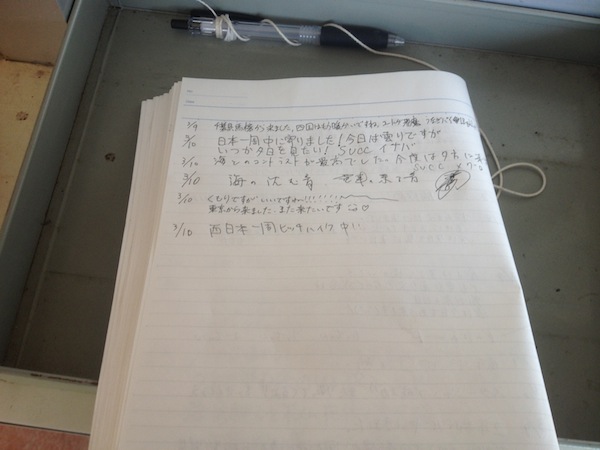 3/9 千葉県船橋から来ました。四国はもう暖かいですね。
3/10 日本一周中に寄りました！今日は曇りですが
いつか夕日を見たい！ SUCC イナバ
3/10 海とのコントラストが最高でした。今度は夕方に
SUCC
3/10 海の沈む音
3/10 くもりですがいいですねー!!!!!!!
東京から来ました。また来たいです ♡
3/10 西日本一周ヒッチハイク中!!